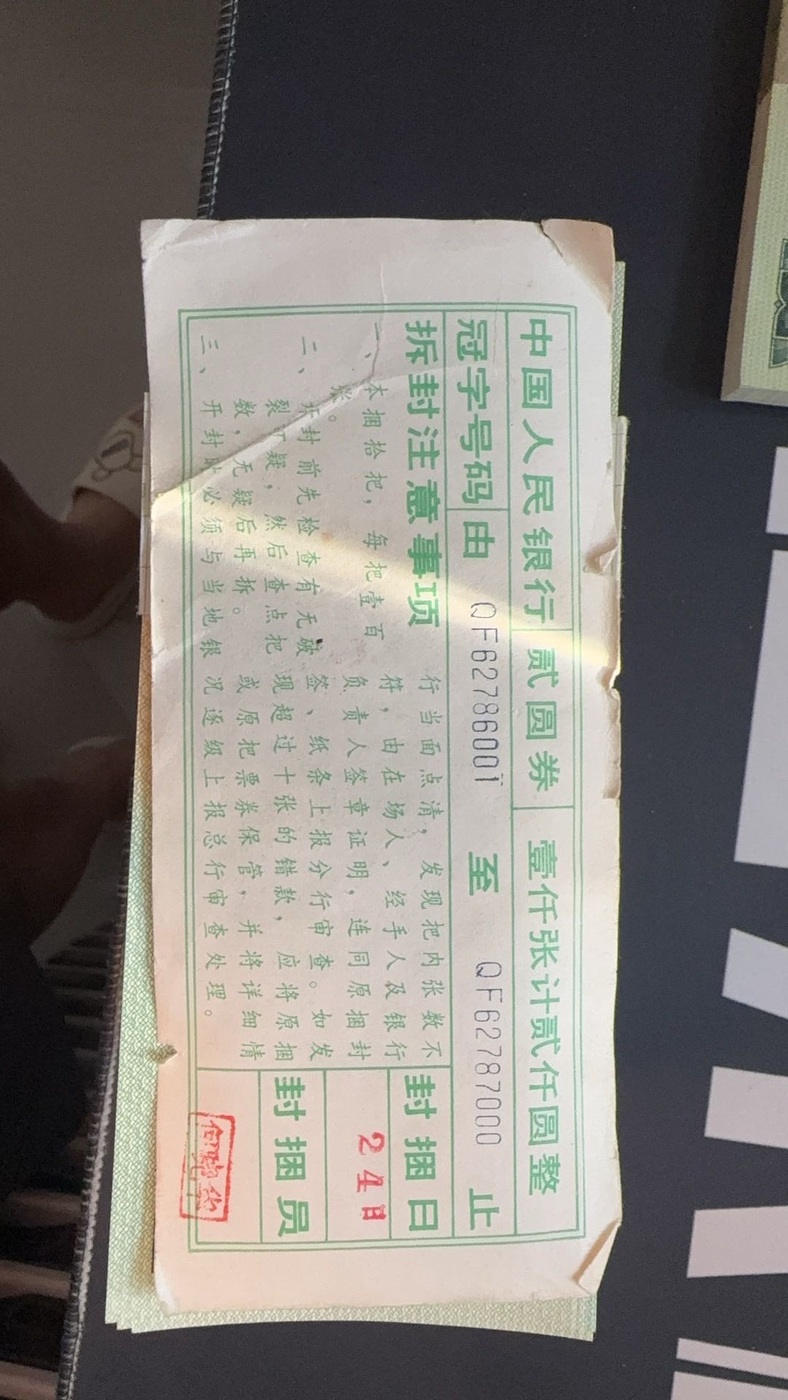 中国人民银行 贰圆券 壹仟张计贰仟圆整
冠字号码 由 QF62786001 至 QF62787000 止
拆封注意事项
一、本捆拾把，每把壹百
张。
二、坏封前先检查有无破
裂可疑，然后查点把
数，无疑后再拆。
三、开封时必须与当地银
行当面点清，发现把内张数不
符，由在场人、经手人及银行
负责人签章证明，连同原捆封
签、纸条上报分行审查。如发
现超过十张的错款，应将原捆
或原把票券保管，并将详细情
况逐级上报总行审查处理。
封捆日
24日
封捆员